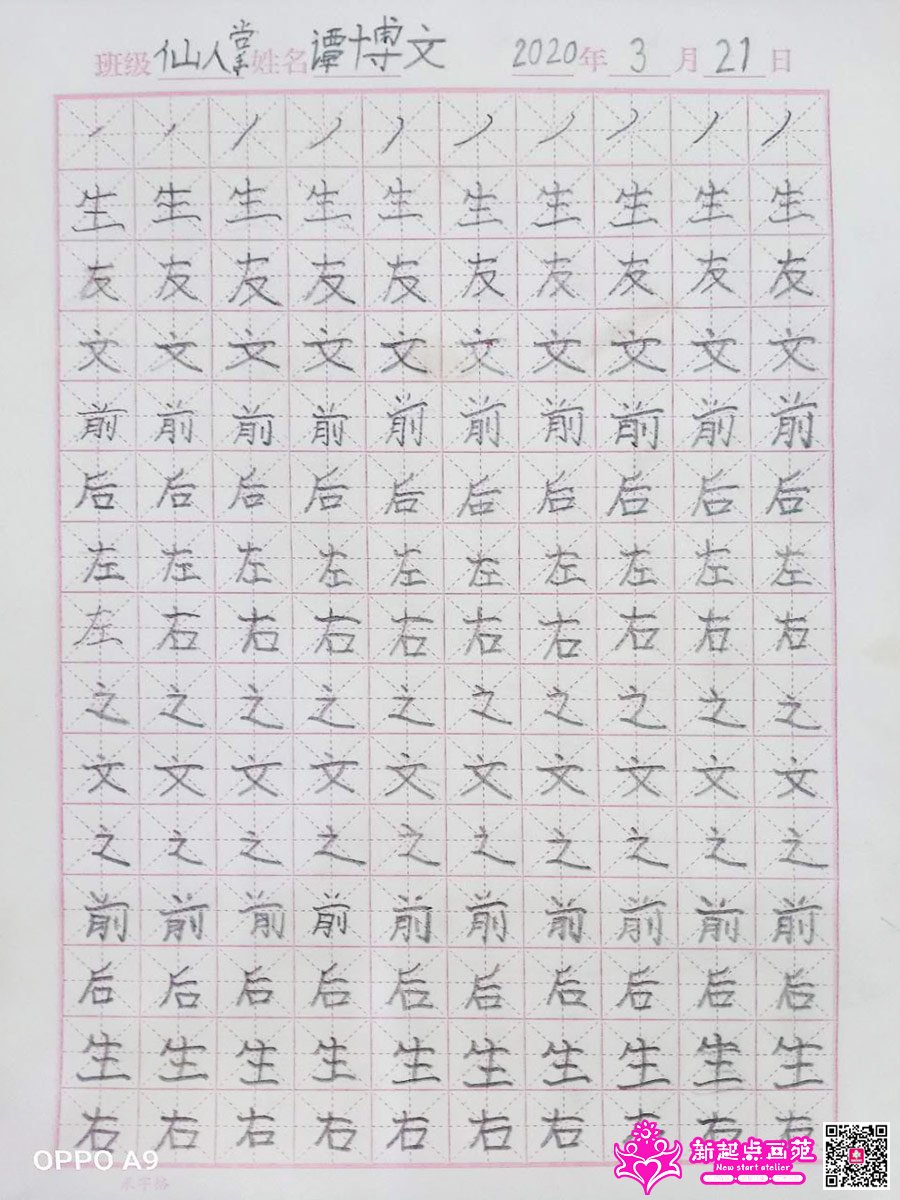 班级 仙人掌 姓名 谭博文 2020年 3 月 21 日
丿 丿 丿 丿 丿 丿 丿 丿 丿 丿
生 生 生 生 生 生 生 生 生 生
友 友 友 友 友 友 友 友 友 友
文 文 文 文 文 文 文 文 文 文
前 前 前 前 前 前 前 前 前 前
后 后 后 后 后 后 后 后 后 后
左 左 左 左 左 左 左 左 左 左
左 右 右 右 右 右 右 右 右 右
之 之 之 之 之 之 之 之 之 之
文 文 文 文 文 文 文 文 文 文
之 之 之 之 之 之 之 之 之 之
前 前 前 前 前 前 前 前 前 前
后 后 后 后 后 后 后 后 后 后
生 生 生 生 生 生 生 生 生 生
右 右 右 右 右 右 右 右 右 右
OPPO A9
新起点画苑
New start atelier